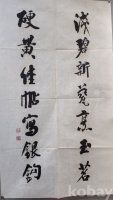 浅碧新瓷烹玉茗
硬黄佳帖写银钩
kobay